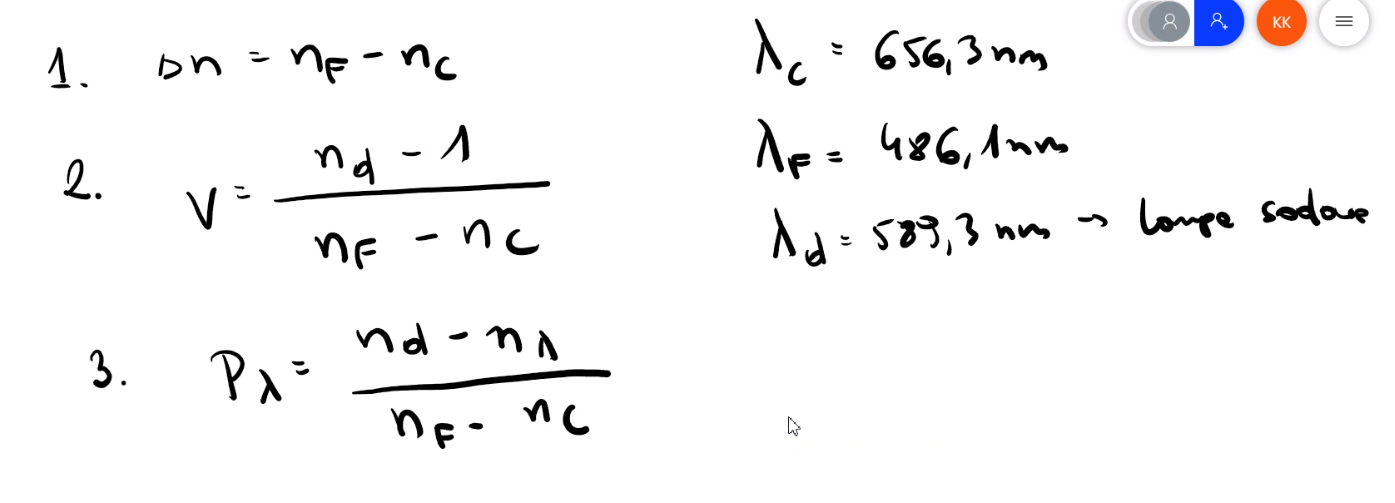 1. Δn = n_F - n_C
2. V = (n_d - 1) / (n_F - n_C)
3. P_λ = (n_d - n_λ) / (n_F - n_C)
λ_C = 656,3 nm
λ_F = 486,1 nm
λ_d = 589,3 nm → lampa sodowa
KK